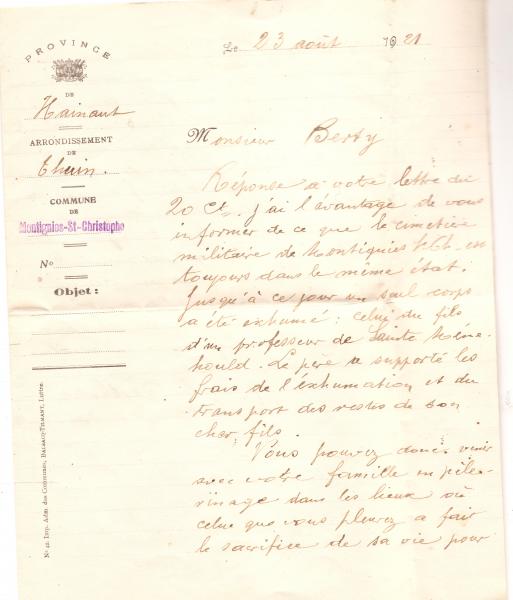 PROVINCE
DE
Hainaut
ARRONDISSEMENT
DE
Thuin.
COMMUNE
DE
Montignies-St-Christophe
No
Objet :
No 42. Imp. Adm. des Communes, Tilmant, Liège.
Le 23 août 1921
Monsieur Berty
Réponse à votre lettre du
20 Ct, j'ai l'avantage de vous
informer de ce que le cimetière
militaire de Montignies est
toujours dans le même état.
Jusqu'à ce jour un seul corps
a été exhumé : celui du fils
d'un professeur de Sainte Méne-
hould. Le père a supporté les
frais de l'exhumation et du
transport des restes de son
cher fils.
Vous pouvez donc venir
avec votre famille en pèle-
rinage dans les lieux où
celui que vous pleurez a fait
le sacrifice de sa vie pour